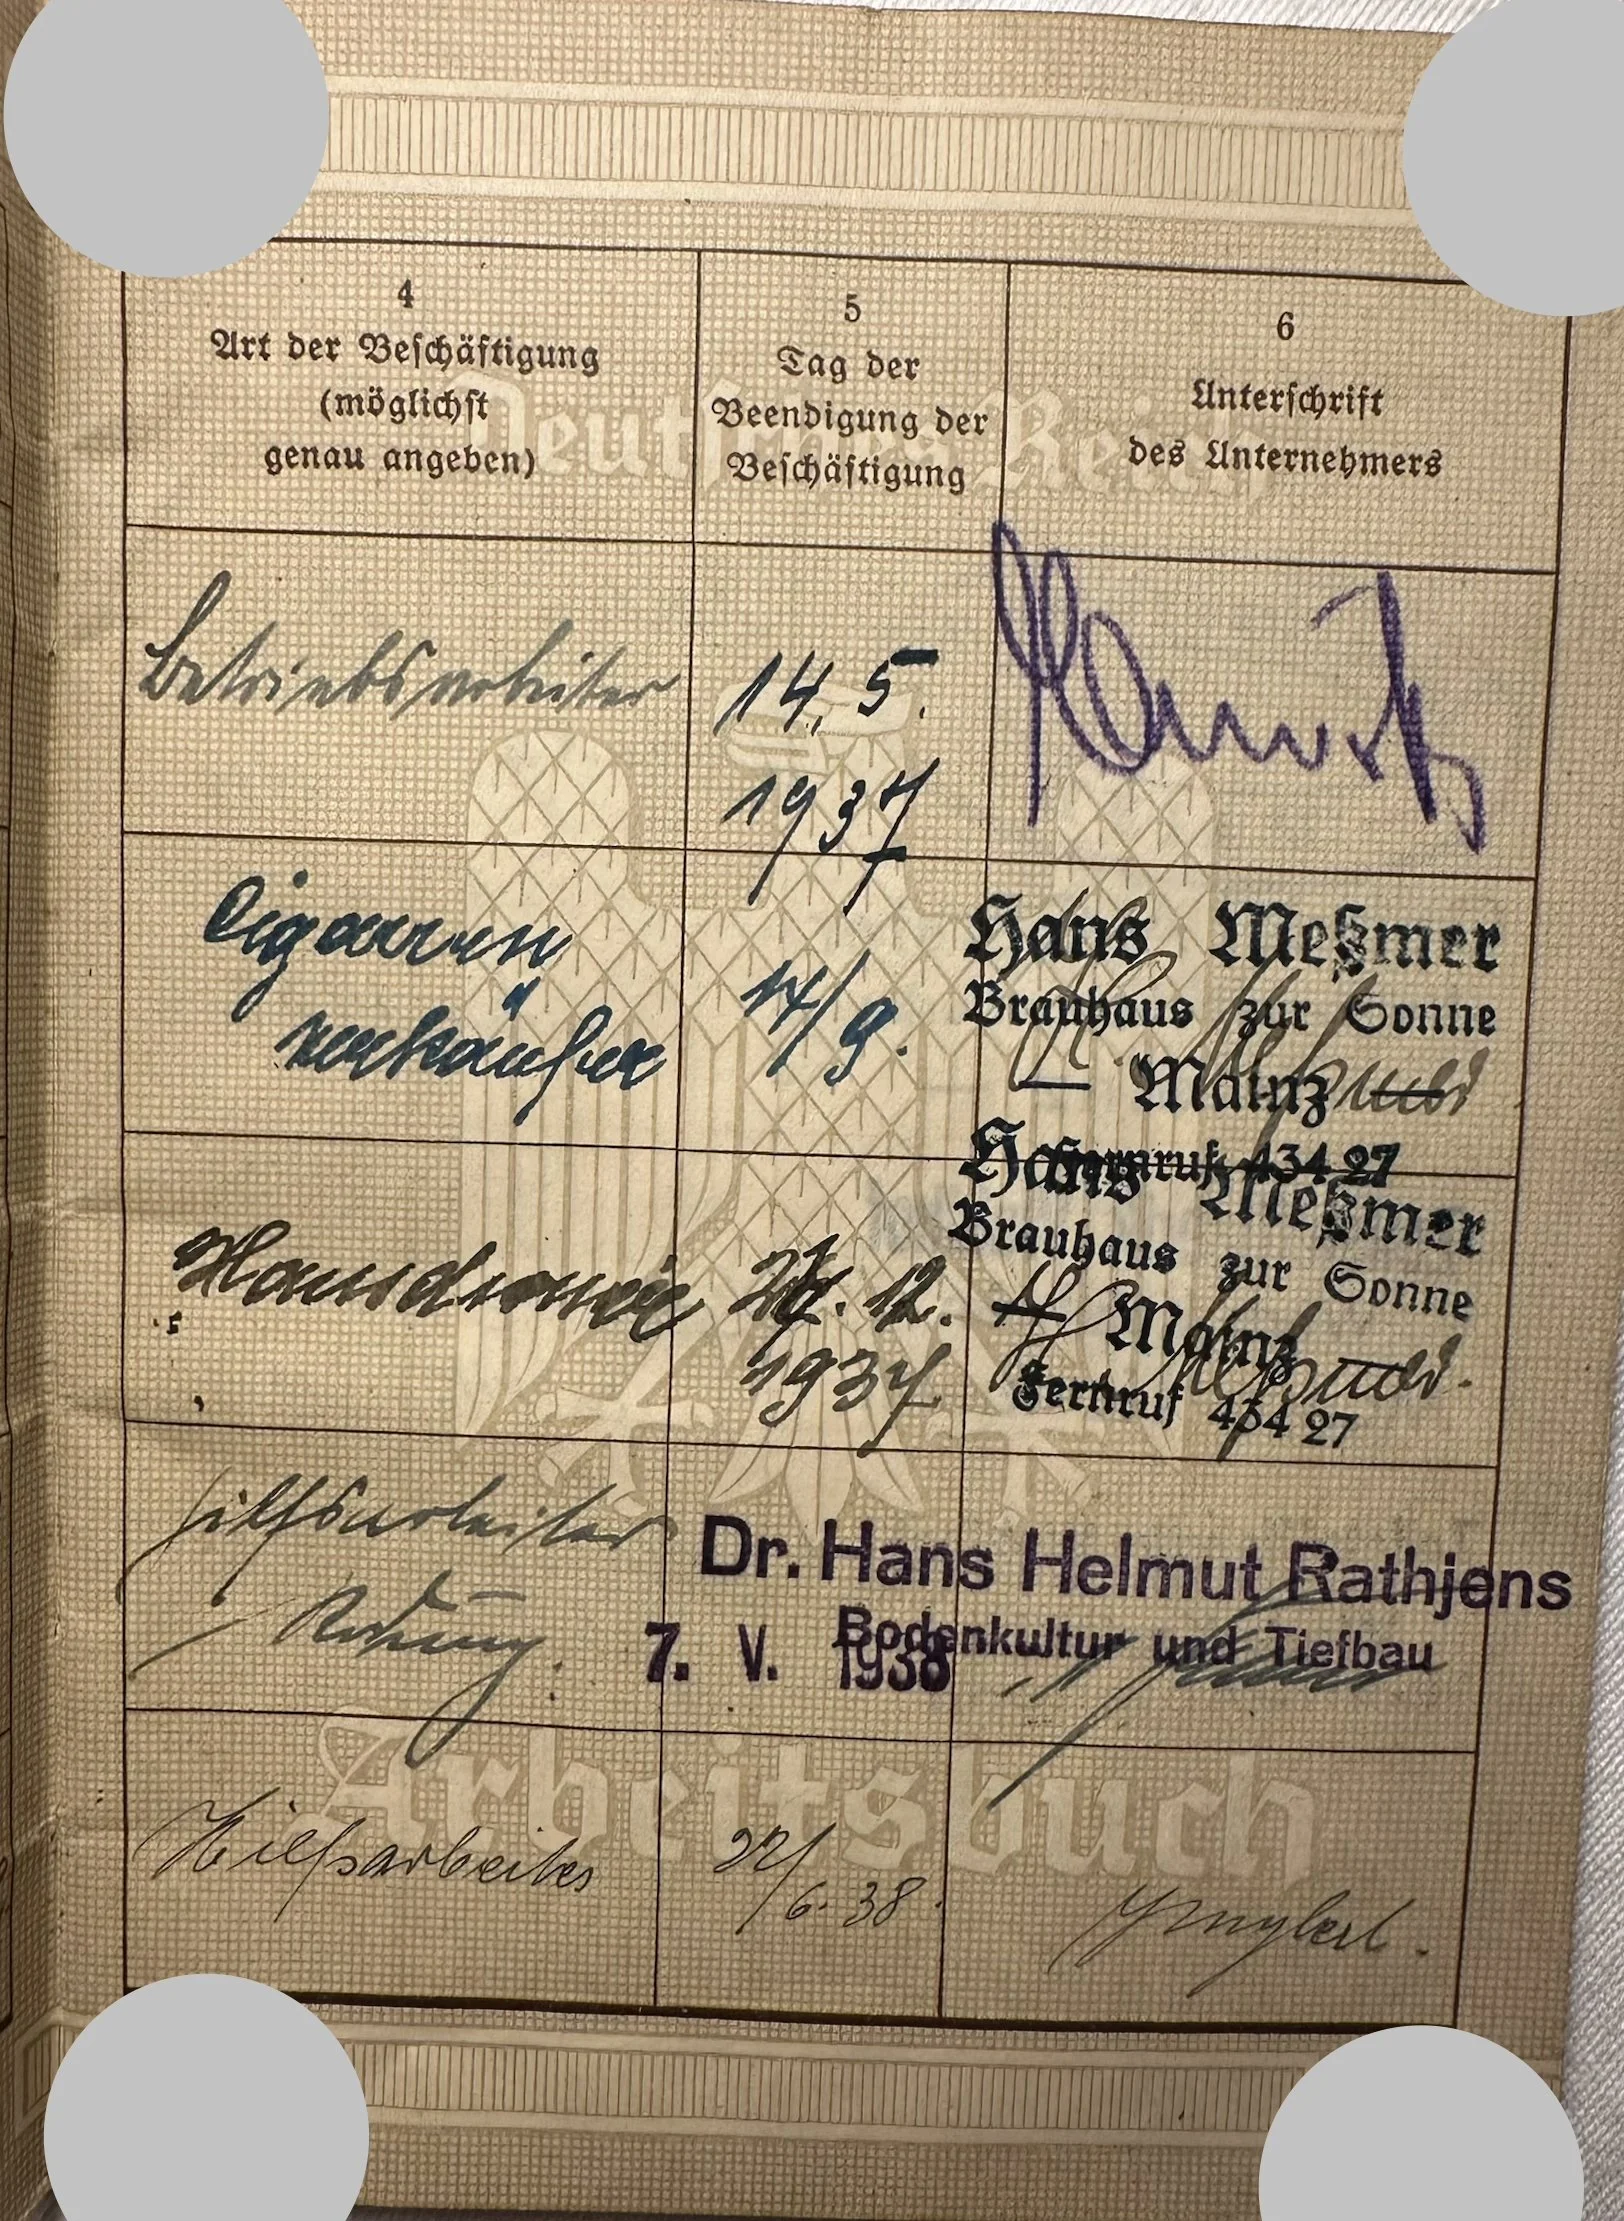 4
Art der Beschäftigung
(möglichst
genau angeben)
5
Tag der
Beendigung der
Beschäftigung
6
Unterschrift
des Unternehmers
Deutsches Reich
Betriebsarbeiter
14. 5.
1937
Cigarren
verkäufer
14/9.
Hans Meßmer
Brauhaus zur Sonne
Mainz
Fernruf 434 27
Hausdiener
12.
1937
Hans Meßmer
Brauhaus zur Sonne
Mainz
Fernruf 434 27
Hilfsarbeiter
7. V. 1938
Dr. Hans Helmut Rathjens
Bodenkultur und Tiefbau
Arbeitsbuch
Hilfsarbeiter
22/
6. 38.